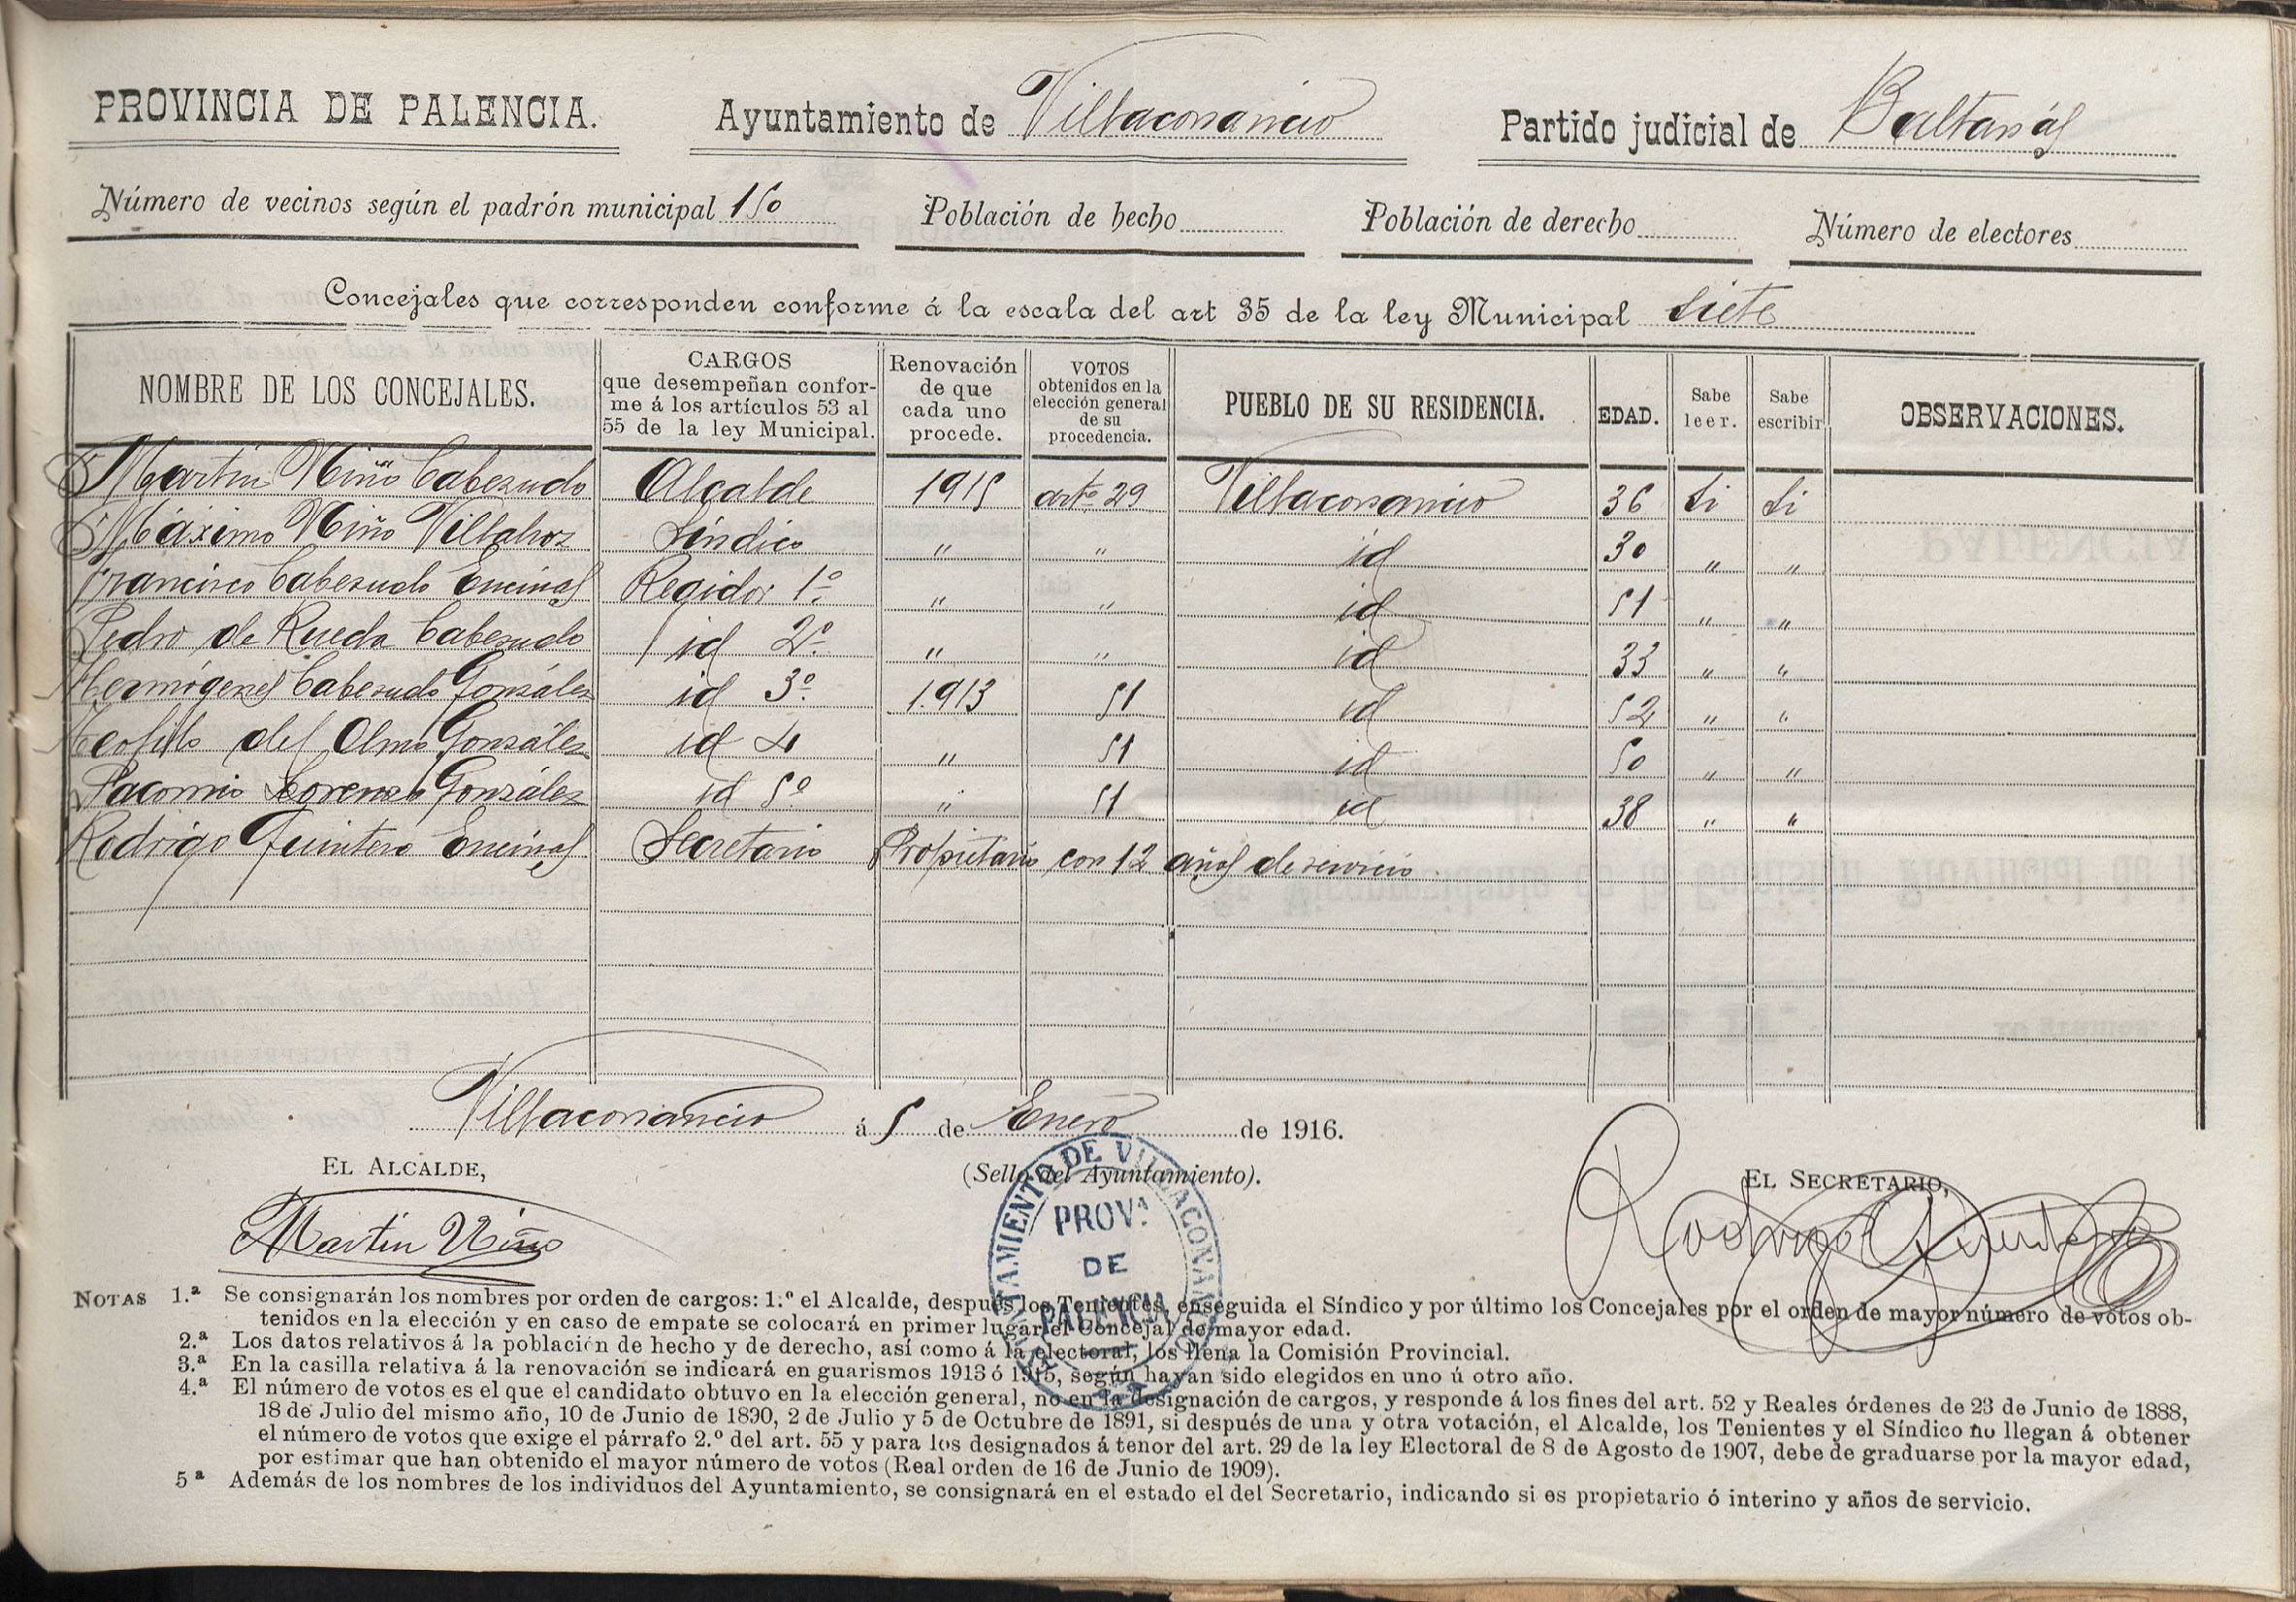 PROVINCIA DE PALENCIA. Ayuntamiento de Villaconancio Partido judicial de Baltanás
Número de vecinos según el padrón municipal 150 Población de hecho Población de derecho Número de electores
Concejales que corresponden conforme á la escala del art 35 de la ley Municipal siete
NOMBRE DE LOS CONCEJALES. CARGOS que desempeñan conforme á los artículos 53 al 55 de la ley Municipal. Renovación de que cada uno procede. VOTOS obtenidos en la elección general de su procedencia. PUEBLO DE SU RESIDENCIA. EDAD. Sabe leer. Sabe escribir OBSERVACIONES.
Martín Niño Cabezudo Alcalde 1915 artº 29 Villaconancio 36 Si Si
Máximo Niño Villahoz Síndico " " id 30 " "
Francisco Cabezudo Encinas Regidor 1º " " id 51 " "
Pedro de Rueda Cabezudo id 2º " " id 33 " "
Hermógenes Cabezudo González id 3º 1.913 51 id 52 " "
Teofilo del Olmo González id 4 " 51 id 50 " "
Pacomio Lorenzo González id 5º " 51 id 38 " "
Rodrigo Quintero Encinas Secretario Propietario con 12 años de servicio
Villaconancio á 5 de Enero de 1916.
EL ALCALDE, (Sello del Ayuntamiento). EL SECRETARIO,
Martin Niño Rodrigo Quintero
AYUNTAMIENTO DE VILLACONANCIO
PROV.ª
DE
PALENCIA
NOTAS 1.ª Se consignarán los nombres por orden de cargos: 1.º el Alcalde, después los Tenientes, enseguida el Síndico y por último los Concejales por el orden de mayor número de votos ob-
tenidos en la elección y en caso de empate se colocará en primer lugar el Concejal de mayor edad.
2.ª Los datos relativos á la población de hecho y de derecho, así como á la electoral, los llena la Comisión Provincial.
3.ª En la casilla relativa á la renovación se indicará en guarismos 1913 ó 1915, según hayan sido elegidos en uno ú otro año.
4.ª El número de votos es el que el candidato obtuvo en la elección general, no en la designación de cargos, y responde á los fines del art. 52 y Reales órdenes de 23 de Junio de 1888,
18 de Julio del mismo año, 10 de Junio de 1890, 2 de Julio y 5 de Octubre de 1891, si después de una y otra votación, el Alcalde, los Tenientes y el Síndico no llegan á obtener
el número de votos que exige el párrafo 2.º del art. 55 y para los designados á tenor del art. 29 de la ley Electoral de 8 de Agosto de 1907, debe de graduarse por la mayor edad,
por estimar que han obtenido el mayor número de votos (Real orden de 16 de Junio de 1909).
5ª Además de los nombres de los individuos del Ayuntamiento, se consignará en el estado el del Secretario, indicando si es propietario ó interino y años de servicio.